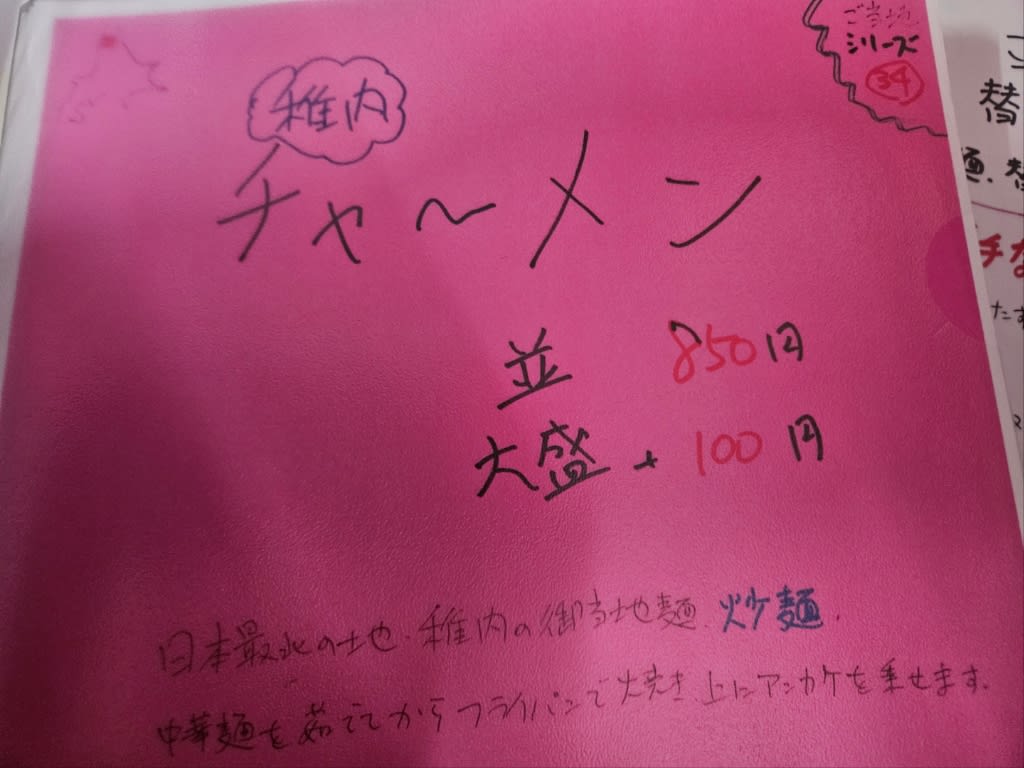 ご当地
シリーズ
34
稚内
チャ〜メン
並 850円
大盛 + 100円
日本最北の土地・稚内の御当地麺、炒麺.
中華麺を茹でてからフライパンで焼き上にアンカケを乗せます.
替
麺、替